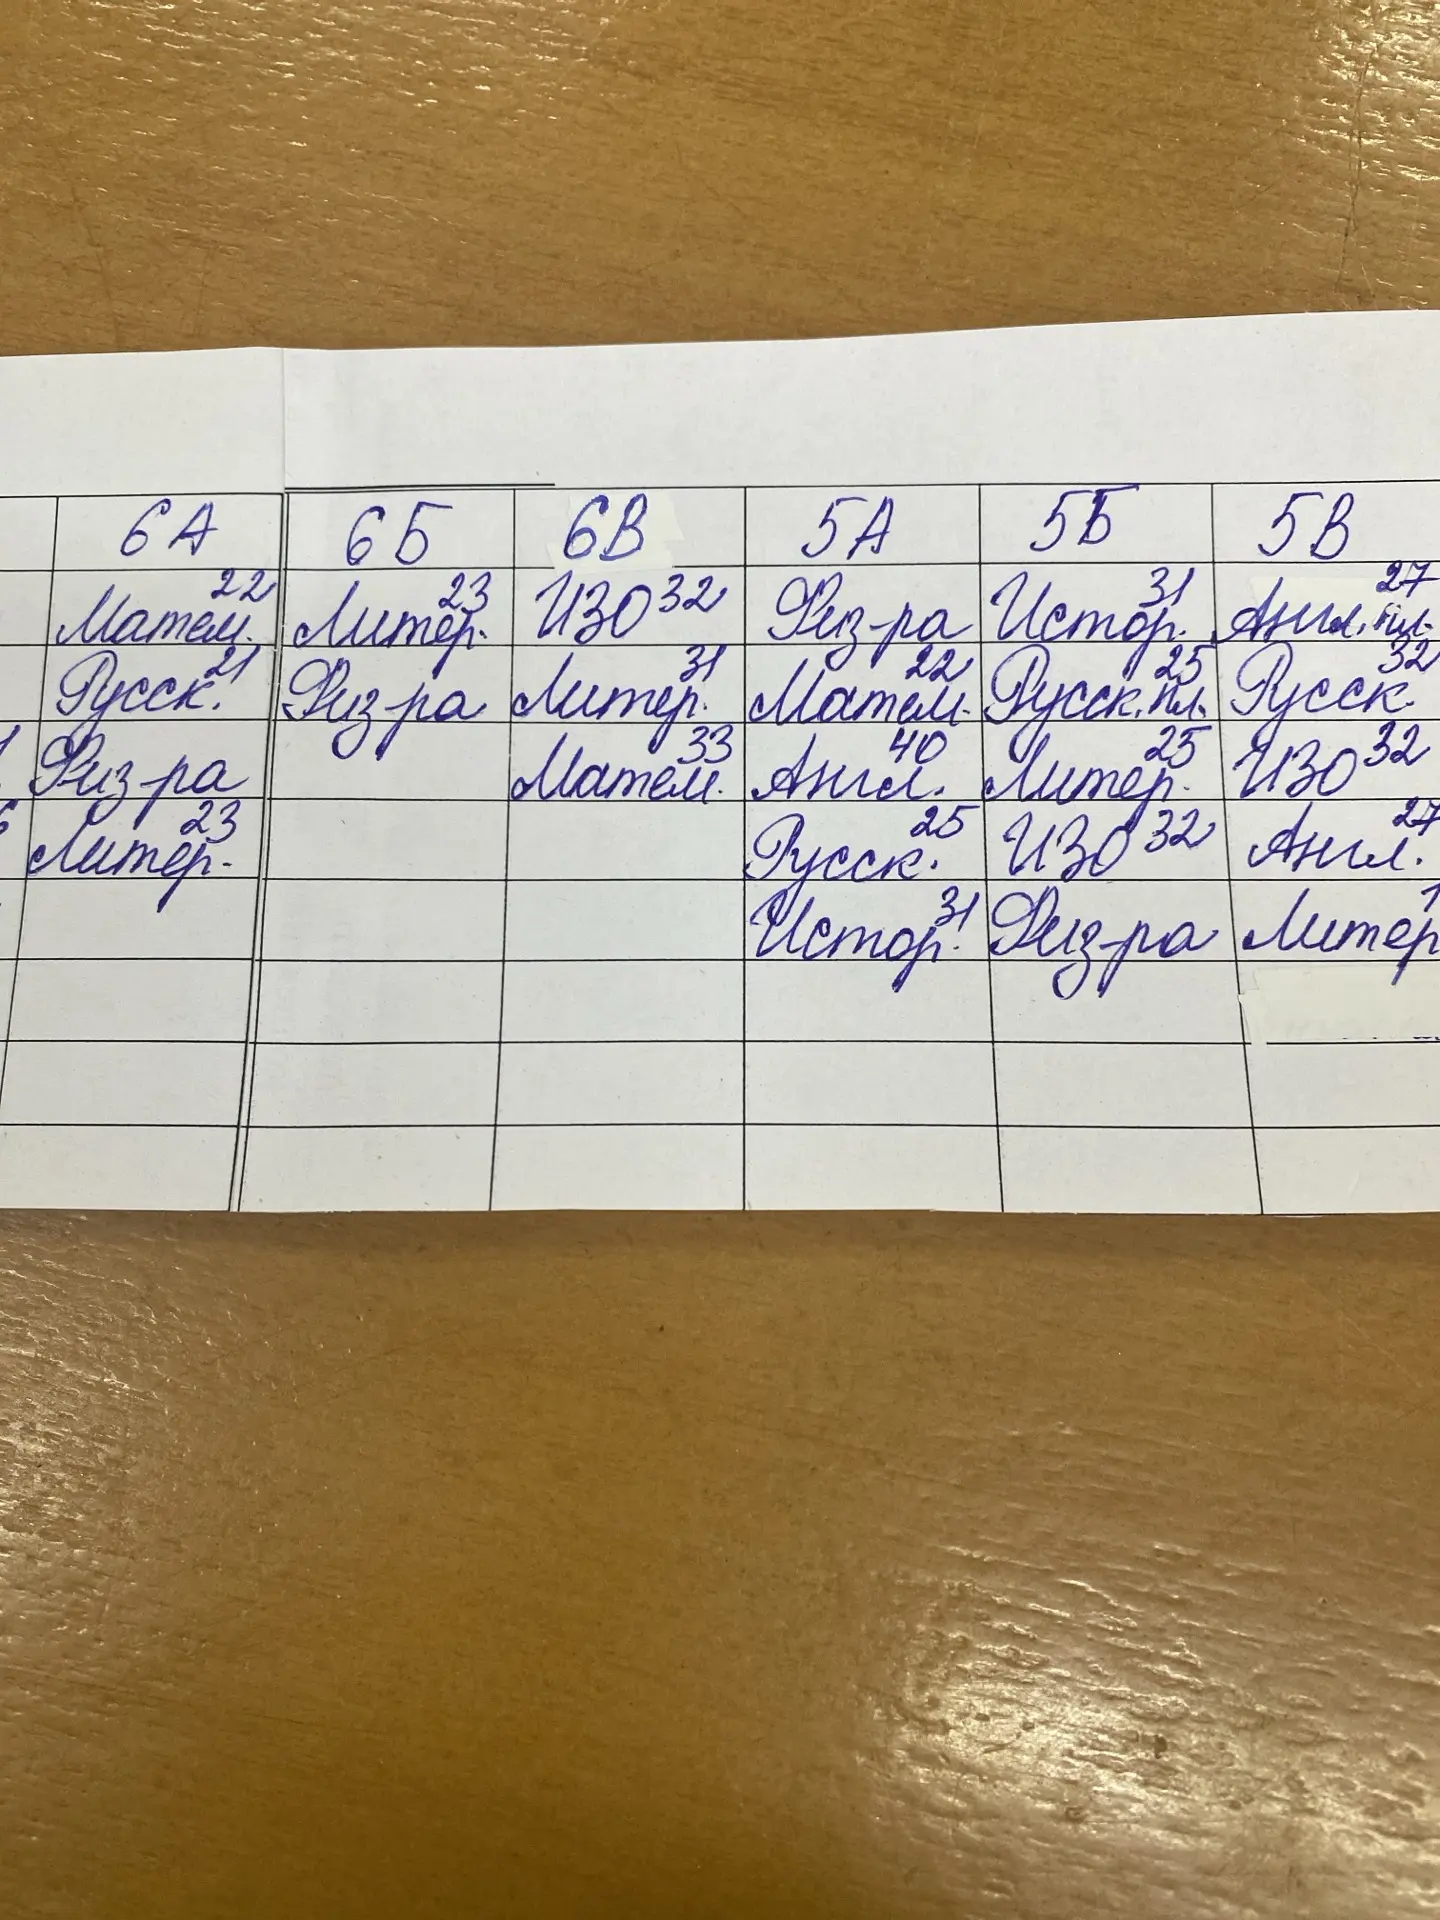 6А 6Б 6В 5А 5Б 5В
Матем. 22 Литер. 23 ИЗО 32 Физ-ра Истор. 31 Англ. пл. 27
Русск. 21 Физ-ра Литер. 31 Матем. 22 Русск. пл. 25 Русск. 32
Физ-ра Матем. 33 Англ. 40 Литер. 25 ИЗО 32
Литер. 23 Русск. 25 ИЗО 32 Англ. 27
Истор. 31 Физ-ра Литер